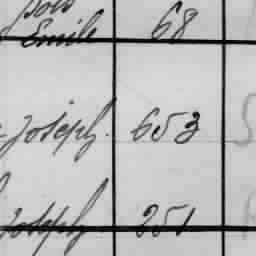 Emile 68
Joseph. 653
Joseph 251